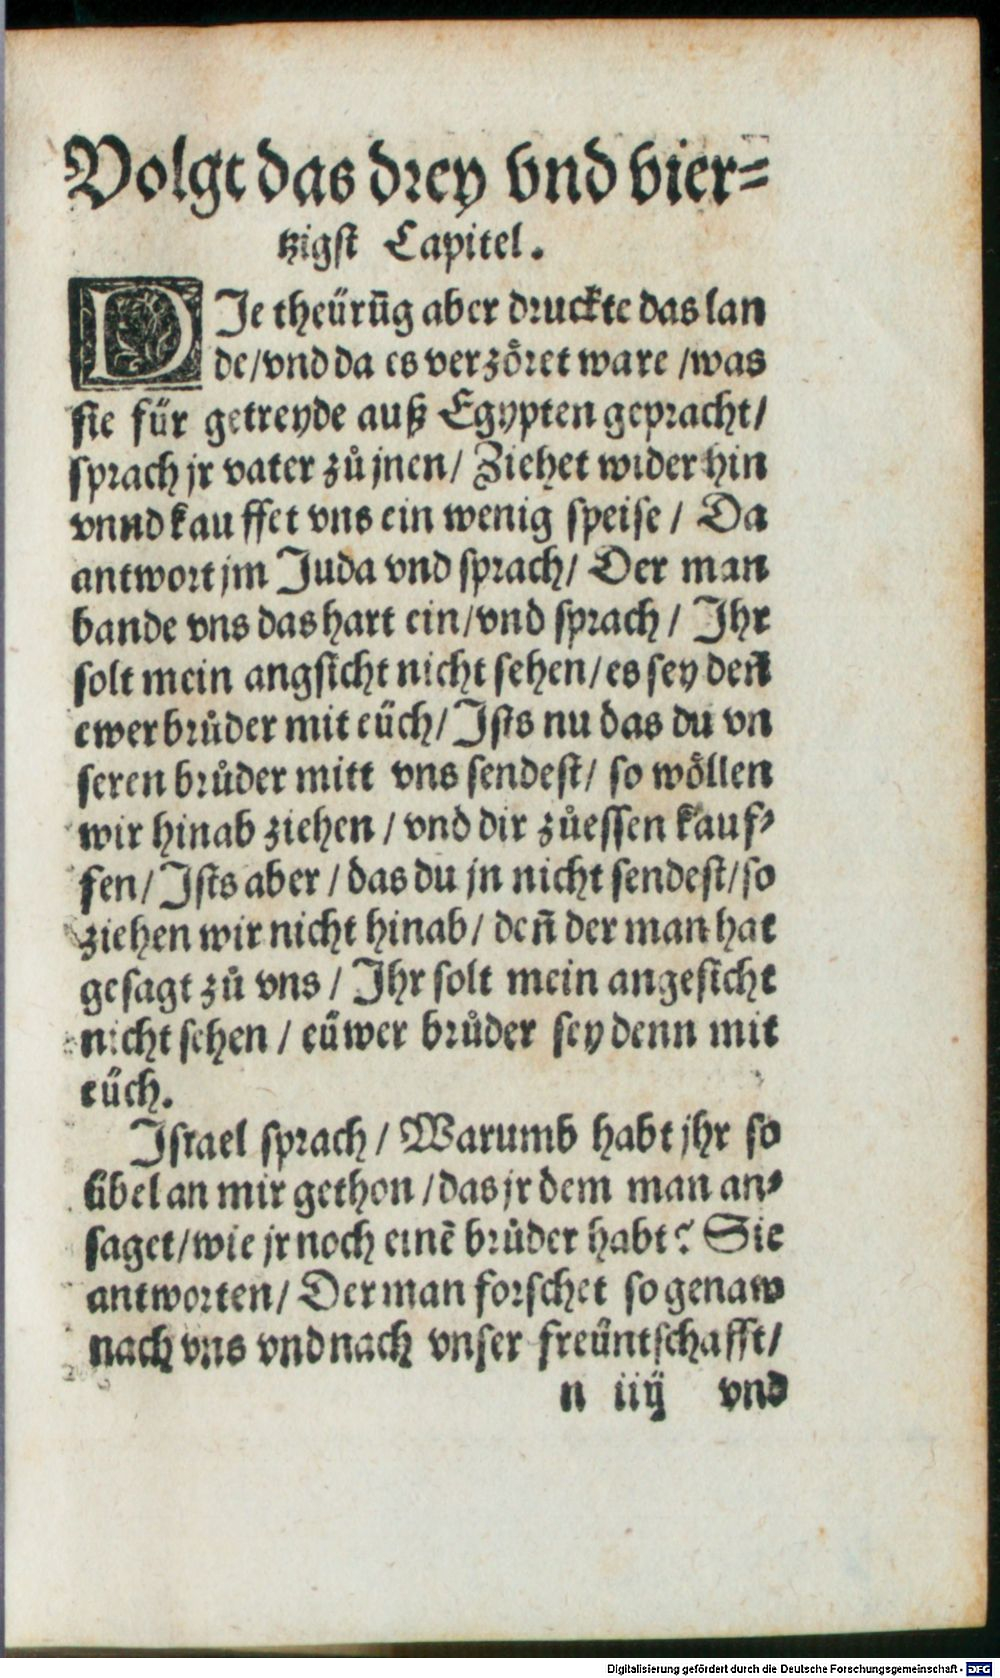 Volgt das drey vnd vier⸗
tzigst Capitel.
DJe theürūg aber druckte das lan
de/vnd da es verzöret ware /was
sie für getreyde auß Egypten gepracht/
sprach jr vater zů jnen/ Ziehet wider hin
vnnd kauffet vns ein wenig speise / Da
antwort jm Juda vnd sprach/ Der man
bande vns das hart ein/vnd sprach / Jhr
solt mein angsicht nicht sehen/es sey deñ
ewer brůder mit eüch/ Jsts nu das du vn
seren brůder mitt vns sendest/ so wöllen
wir hinab ziehen / vnd dir zůessen kauf⸗
fen/ Jsts aber / das du jn nicht sendest/so
ziehen wir nicht hinab/ deñ der man hat
gesagt zů vns / Jhr solt mein angesicht
nicht sehen / eüwer brůder sey denn mit
eüch.
Jsrael sprach / Warumb habt jhr so
übel an mir gethon /das jr dem man an⸗
saget/wie jr noch einē brůder habt? Sie
antworten/ Der man forschet so genaw
nach vns vnd nach vnser freüntschafft/
n iiij vnd
Digitalisierung gefördert durch die Deutsche Forschungsgemeinschaft - DFG